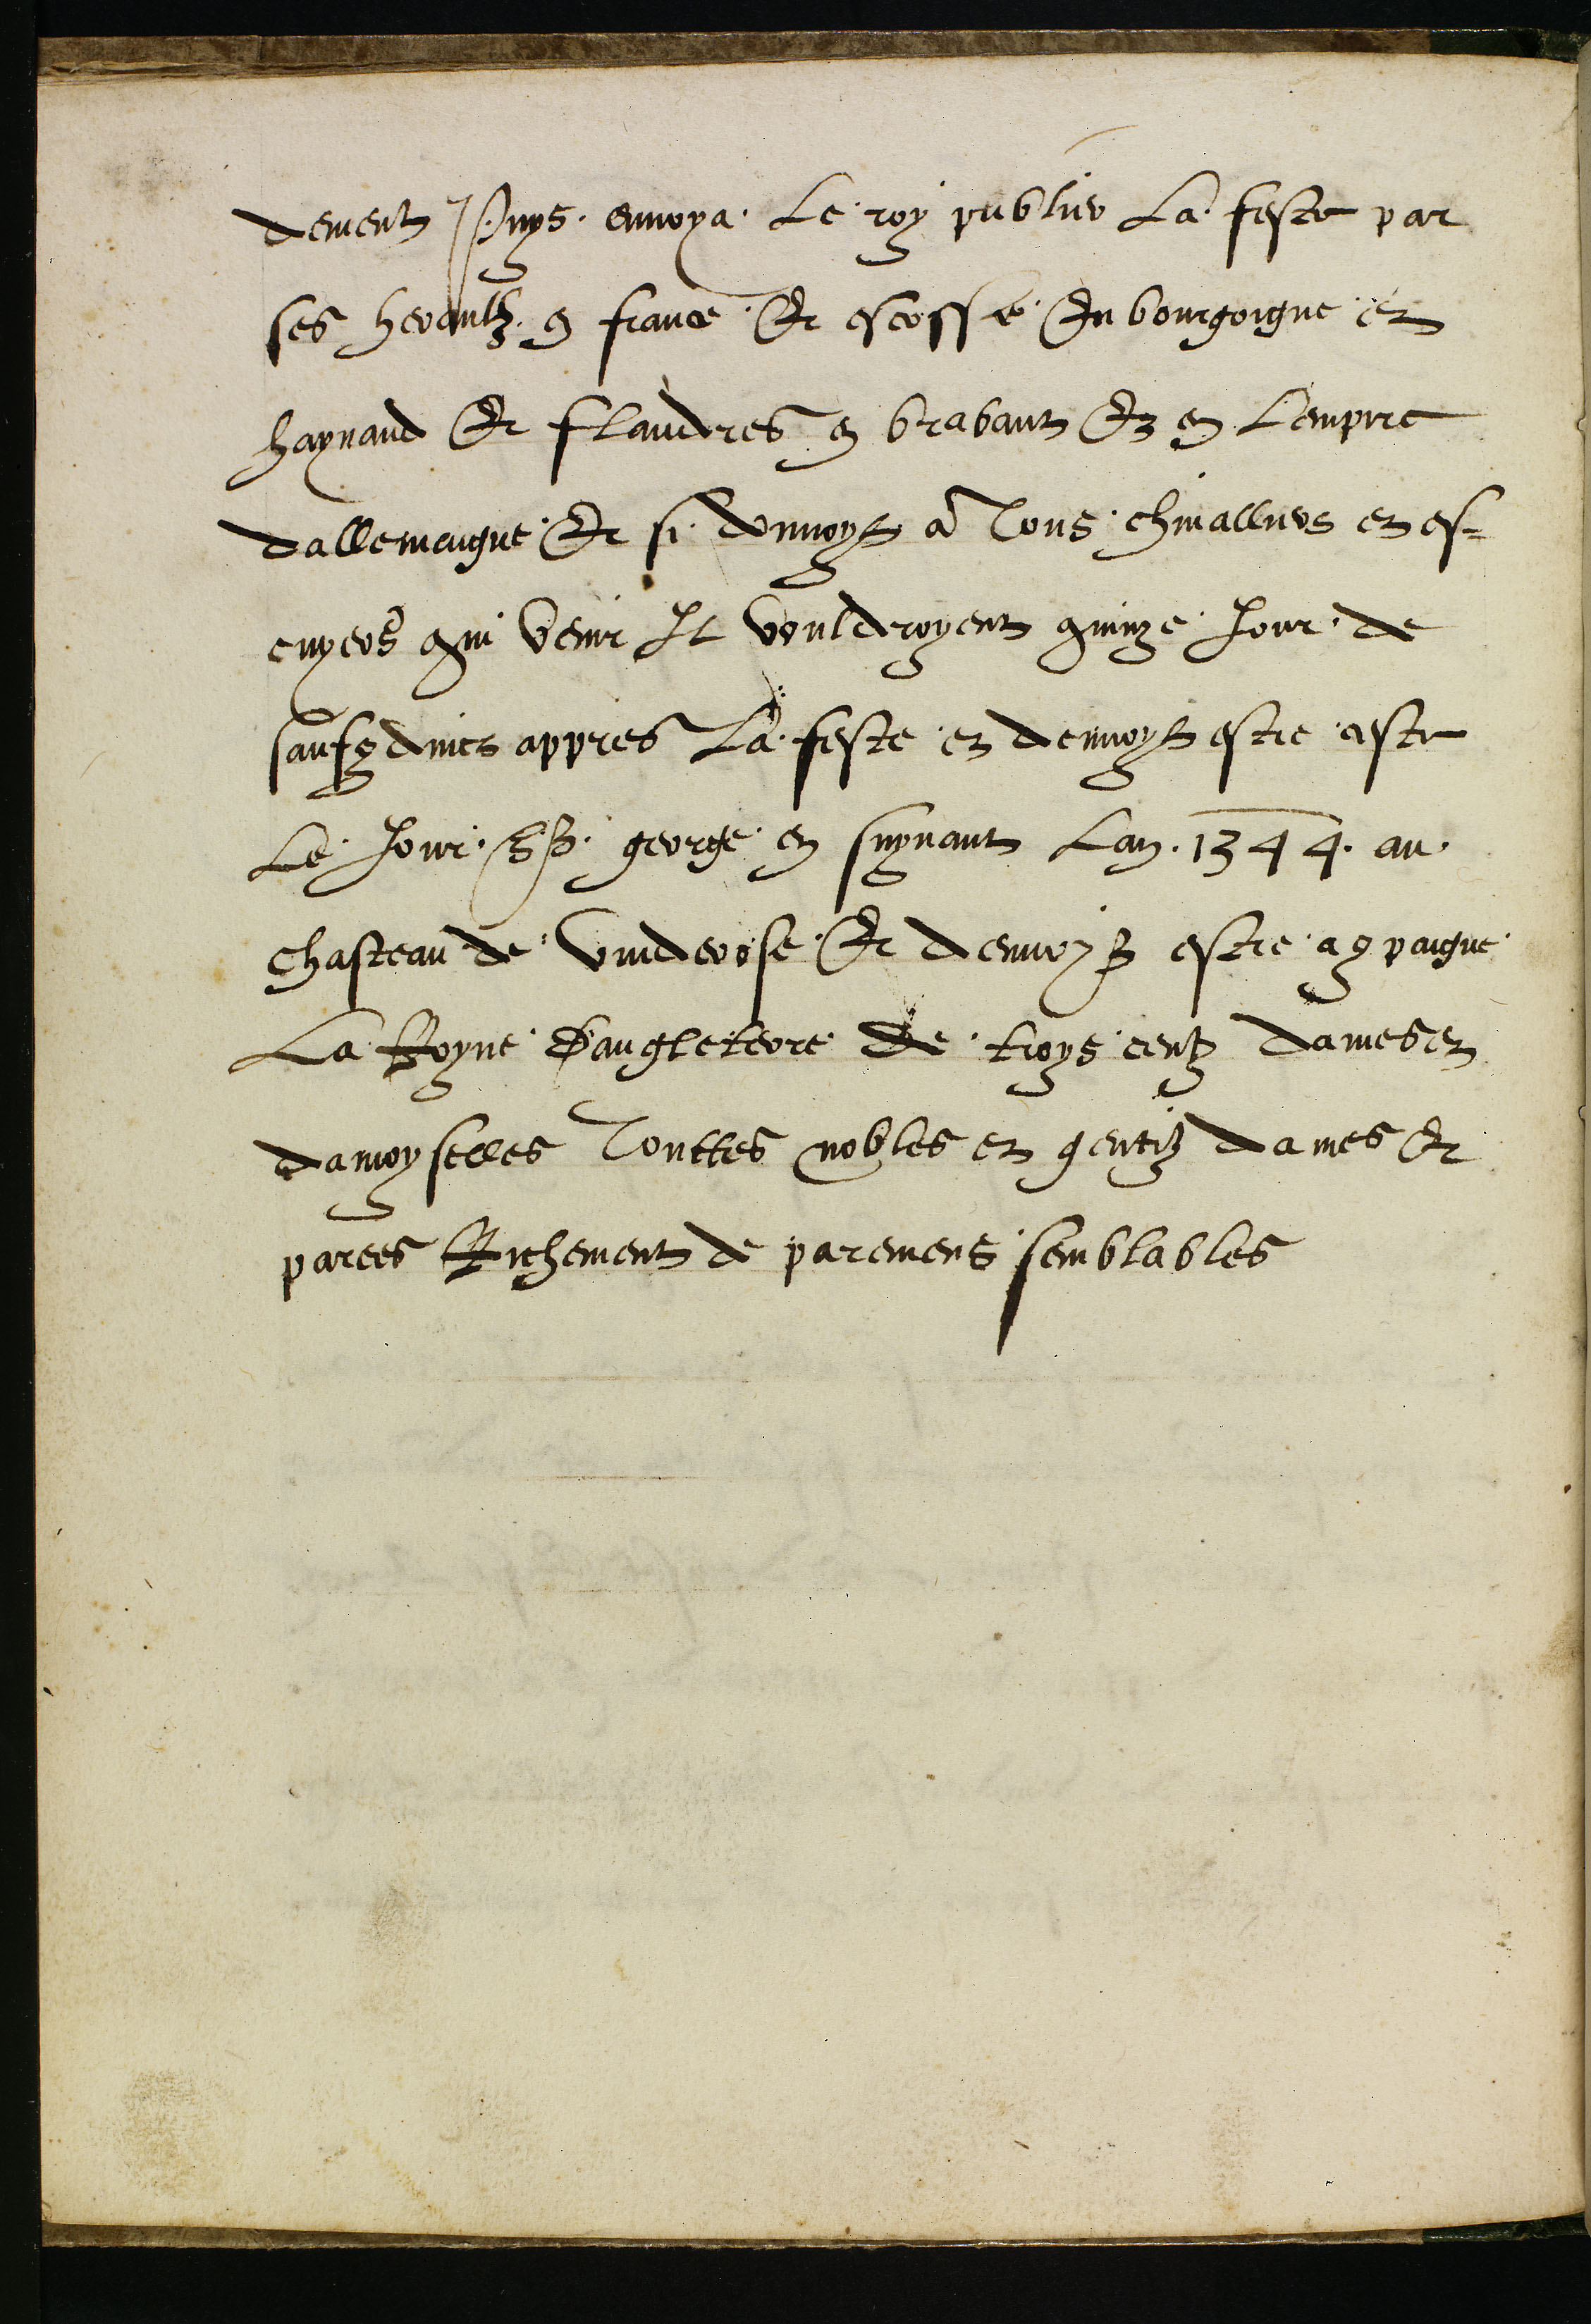 dement Puys · envoya · Le · roy publier La · feste par
ses heraultz · en france · Et escosse · En bourgoigne et
haynaud Et flandres en brabant Et en Lempire
dallemaigne · Et si · donnoyt a Tous · chivalliers et es=
cuyers qui venir Il vouldroyent quinze · Jour · de
saufconduict appres La · feste · et devoyt estre ceste
Le · Jour · St · george · en suyvant Lan · 1344 · au ·
chasteau de · vinderose · Et devoyt estre acompaigne
La Royne D'angleterre De · troys centz dames et
damoyselles Touttes nobles et gentilz dames Et
parees Richement de paremens semblables